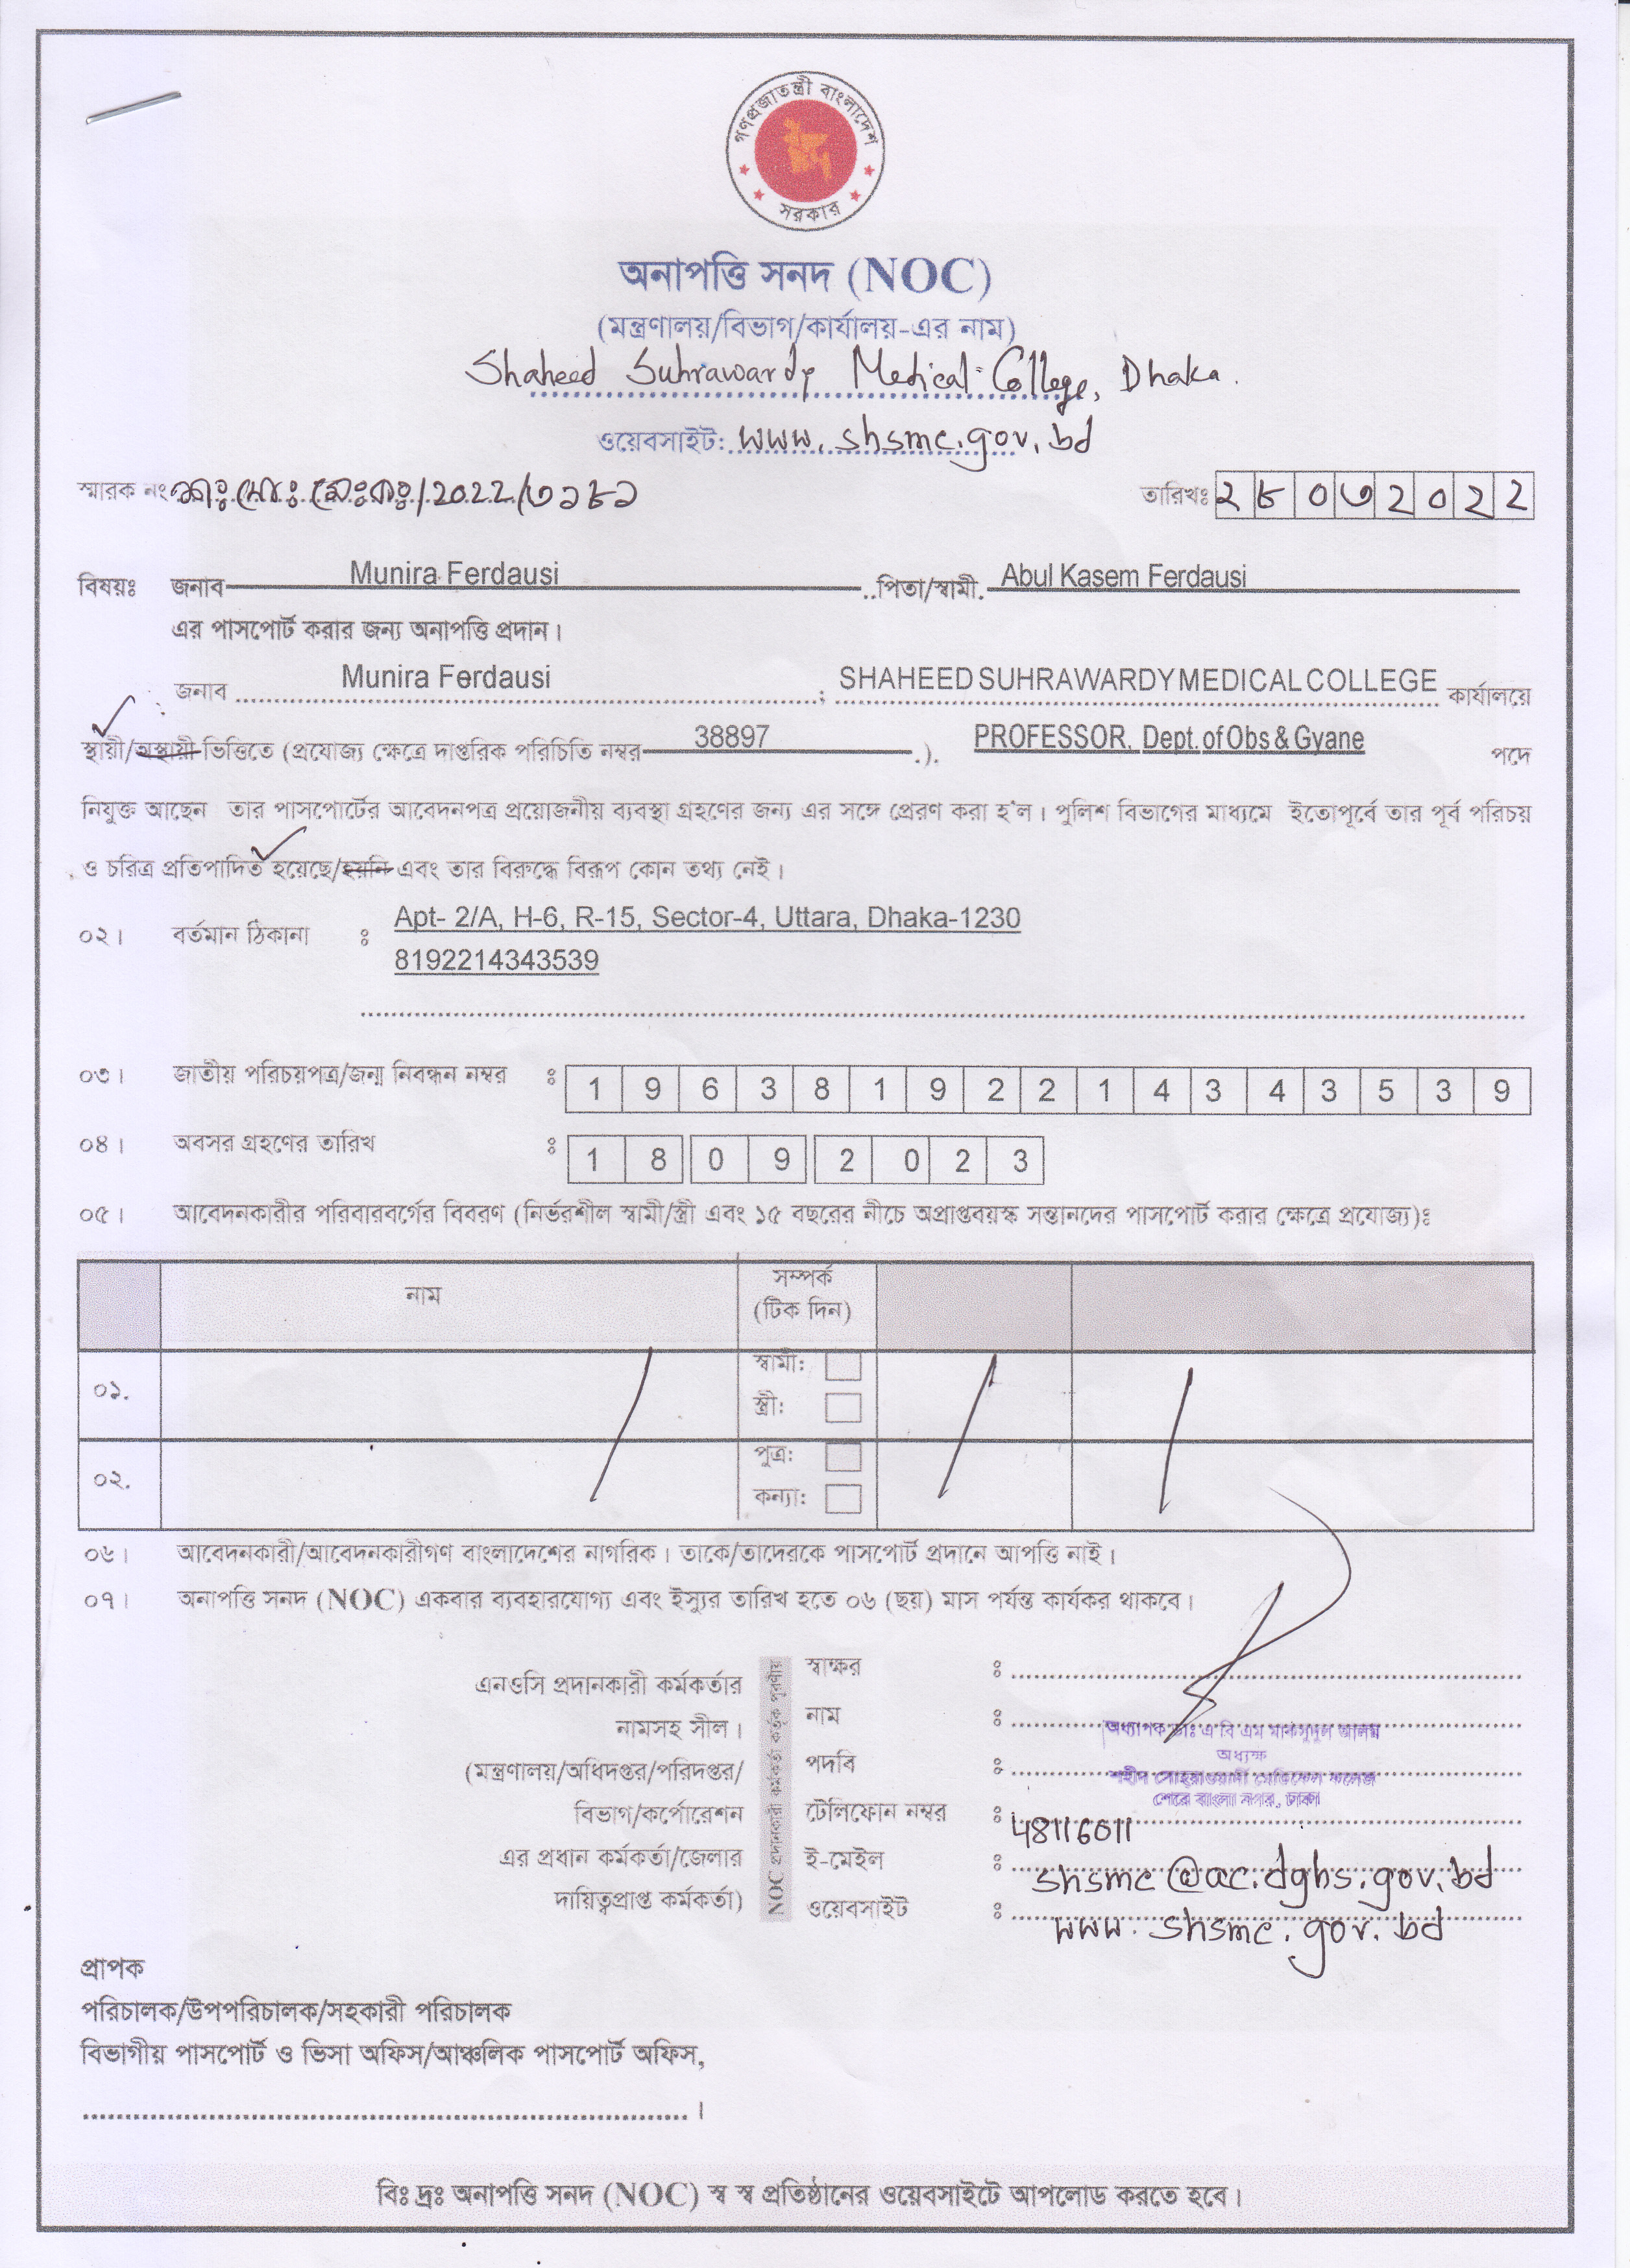 গণপ্রজাতন্ত্রী বাংলাদেশ
সরকার
অনাপত্তি সনদ (NOC)
(মন্ত্রণালয়/বিভাগ/কার্যালয়-এর নাম)
Shaheed Suhrawardy Medical College, Dhaka.
ওয়েবসাইট: www.shsmc.gov.bd
স্মারক নং /2022/৩১৮১ তারিখঃ ২৮০৩2022
বিষয়ঃ জনাব Munira Ferdausi ..পিতা/স্বামী. Abul Kasem Ferdausi
এর পাসপোর্ট করার জন্য অনাপত্তি প্রদান।
জনাব Munira Ferdausi ; SHAHEED SUHRAWARDY MEDICAL COLLEGE কার্যালয়ে
স্থায়ী/অস্থায়ী ভিত্তিতে (প্রযোজ্য ক্ষেত্রে দাপ্তরিক পরিচিতি নম্বর 38897 .). PROFESSOR, Dept. of Obs & Gyane পদে
নিযুক্ত আছেন তার পাসপোর্টের আবেদনপত্র প্রয়োজনীয় ব্যবস্থা গ্রহণের জন্য এর সঙ্গে প্রেরণ করা হ'ল। পুলিশ বিভাগের মাধ্যমে ইতোপূর্বে তার পূর্ব পরিচয়
ও চরিত্র প্রতিপাদিত হয়েছে/হয়নি এবং তার বিরুদ্ধে বিরূপ কোন তথ্য নেই।
০২। বর্তমান ঠিকানা ঃ Apt- 2/A, H-6, R-15, Sector-4, Uttara, Dhaka-1230
8192214343539
০৩। জাতীয় পরিচয়পত্র/জন্ম নিবন্ধন নম্বর ঃ 1 9 6 3 8 1 9 2 2 1 4 3 4 3 5 3 9
০৪। অবসর গ্রহণের তারিখ ঃ 1 8 0 9 2 0 2 3
০৫। আবেদনকারীর পরিবারবর্গের বিবরণ (নির্ভরশীল স্বামী/স্ত্রী এবং ১৫ বছরের নীচে অপ্রাপ্তবয়স্ক সন্তানদের পাসপোর্ট করার ক্ষেত্রে প্রযোজ্য)ঃ
নাম সম্পর্ক
(টিক দিন)
০১. স্বামী:
স্ত্রী:
০২. পুত্র:
কন্যা:
০৬। আবেদনকারী/আবেদনকারীগণ বাংলাদেশের নাগরিক। তাকে/তাদেরকে পাসপোর্ট প্রদানে আপত্তি নাই।
০৭। অনাপত্তি সনদ (NOC) একবার ব্যবহারযোগ্য এবং ইস্যুর তারিখ হতে ০৬ (ছয়) মাস পর্যন্ত কার্যকর থাকবে।
এনওসি প্রদানকারী কর্মকর্তার
নামসহ সীল।
(মন্ত্রণালয়/অধিদপ্তর/পরিদপ্তর/
বিভাগ/কর্পোরেশন
এর প্রধান কর্মকর্তা/জেলার
দায়িত্বপ্রাপ্ত কর্মকর্তা)
NOC প্রদানকারী কর্মকর্তা কর্তৃক পূরণীয়
স্বাক্ষর ঃ
নাম ঃ অধ্যাপক ডাঃ এ বি এম মাকসুদুল আলম
অধ্যক্ষ
পদবি ঃ শহীদ সোহরাওয়ার্দী মেডিকেল কলেজ
শেরে বাংলা নগর, ঢাকা
টেলিফোন নম্বর ঃ 48116011
ই-মেইল ঃ shsmc@ac.dghs.gov.bd
ওয়েবসাইট ঃ www.shsmc.gov.bd
প্রাপক
পরিচালক/উপপরিচালক/সহকারী পরিচালক
বিভাগীয় পাসপোর্ট ও ভিসা অফিস/আঞ্চলিক পাসপোর্ট অফিস,
।
বিঃ দ্রঃ অনাপত্তি সনদ (NOC) স্ব স্ব প্রতিষ্ঠানের ওয়েবসাইটে আপলোড করতে হবে।